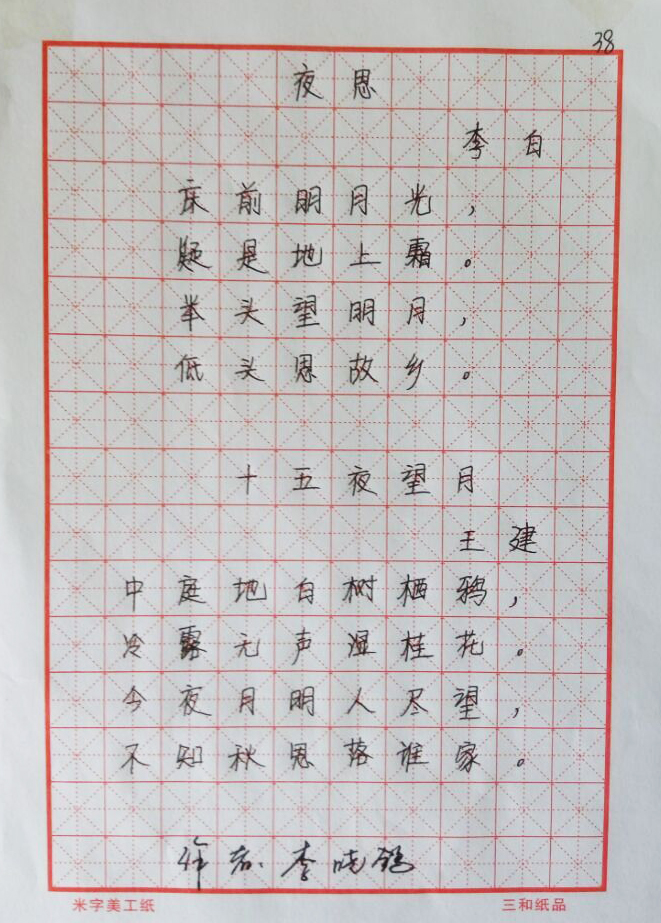 38
夜思
李白
床前明月光，
疑是地上霜。
举头望明月，
低头思故乡。
十五夜望月
王建
中庭地白树栖鸦，
冷露无声湿桂花。
今夜月明人尽望，
不知秋思落谁家。
作者：李晓鸽
米字美工纸 三和纸品